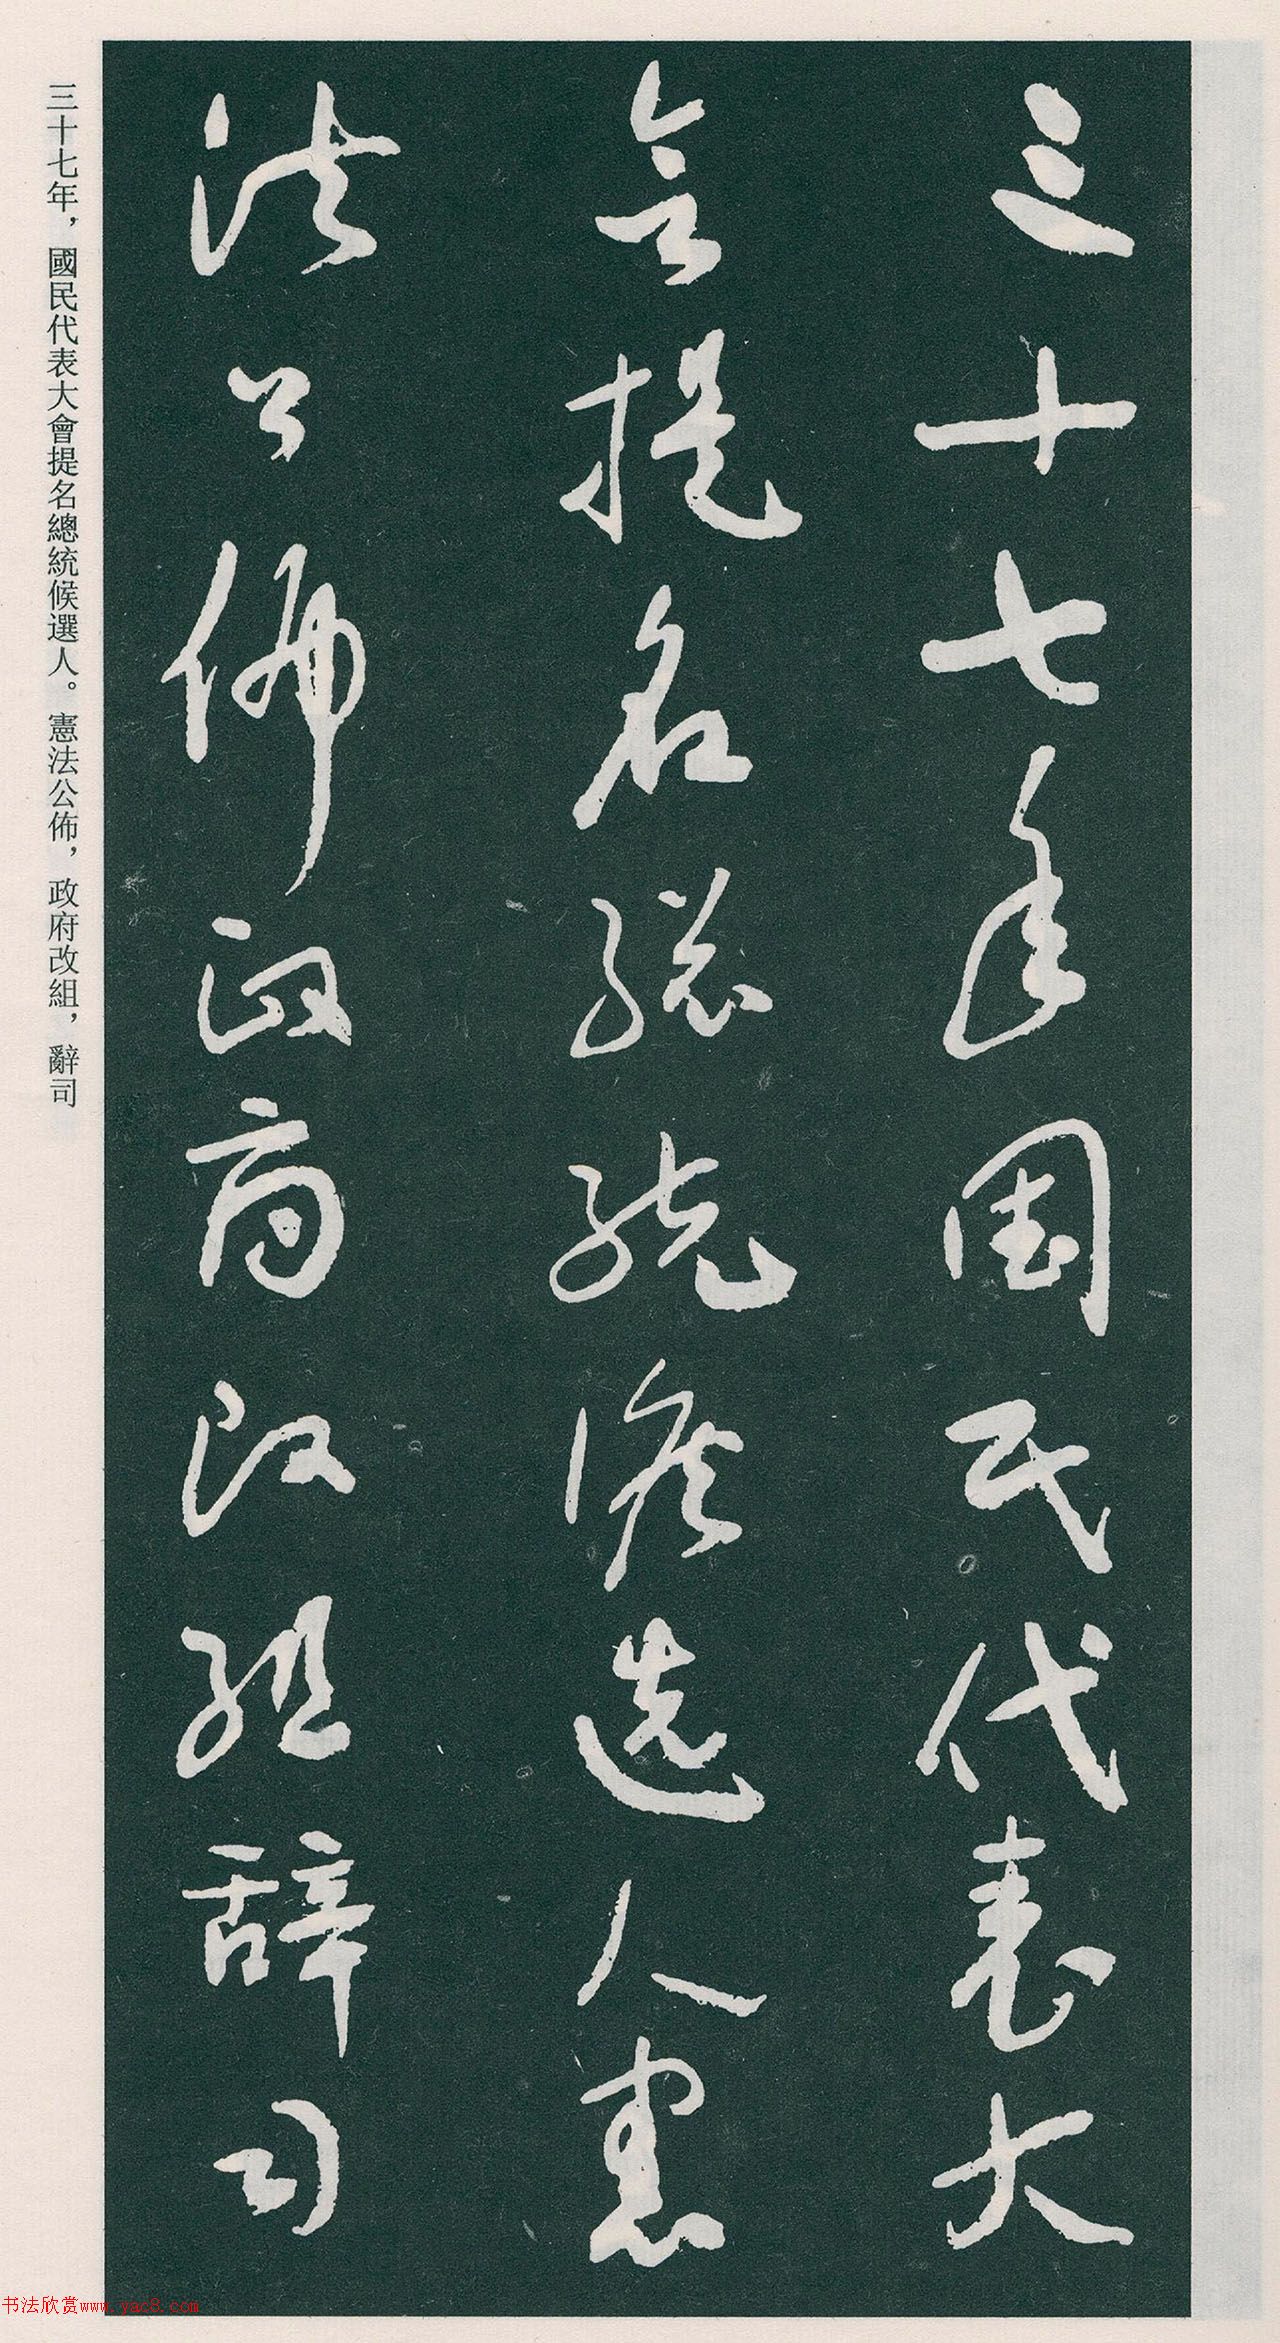 三十七年國民代表大
會提名總統候選人憲
法公佈政府改組辭司
三十七年，國民代表大會提名總統候選人。憲法公佈，政府改組，辭司
书法欣赏www.yac8.com